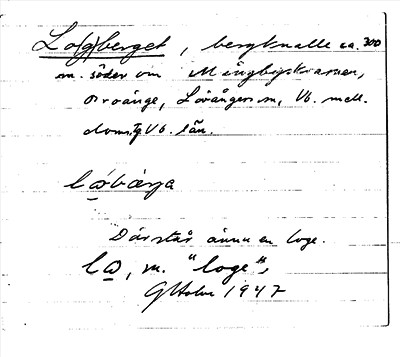 Lo(g)berget, bergknalle ca. 300
m. söder om Mångbyskvarnen,
Broänge, Lövångers sn, Vb. mell.
doms. Vb. län.
Där står ännu en loge.
m. "loge".
G Holm 1947